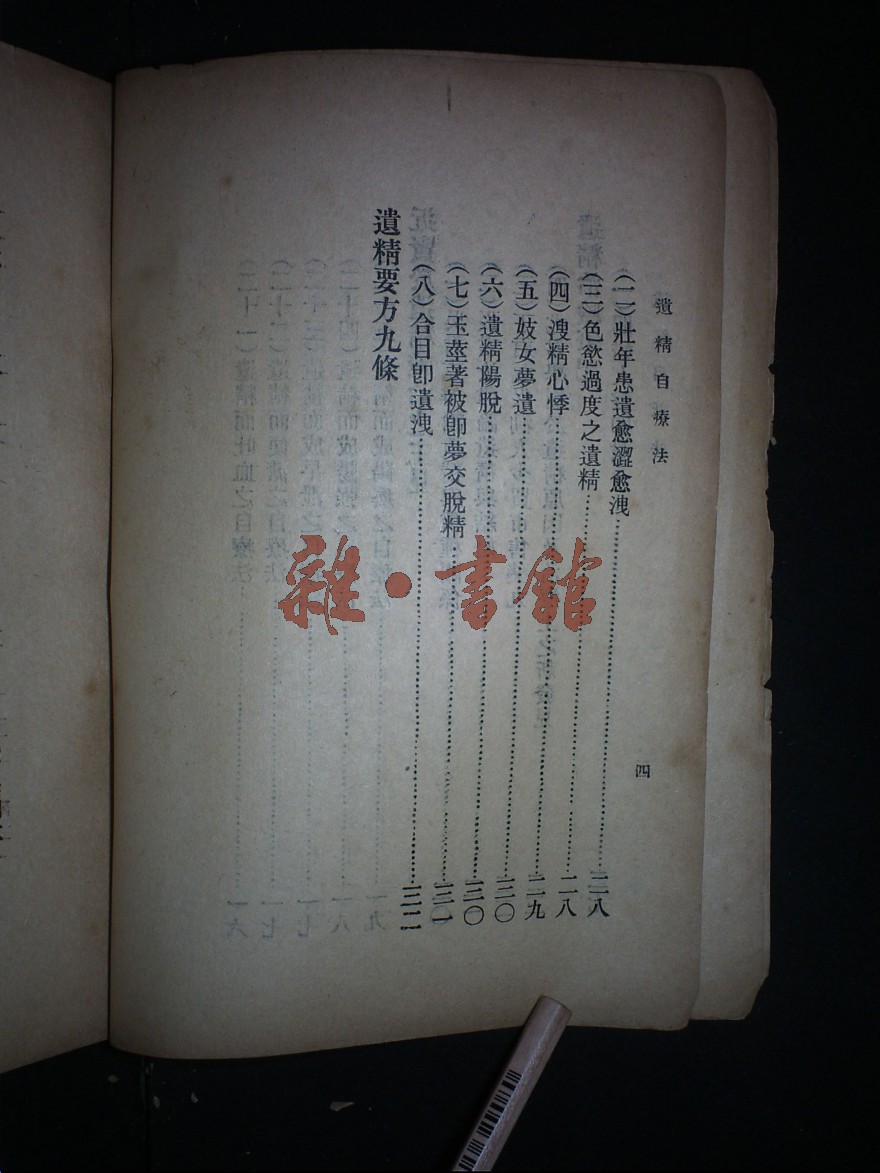 遺精自療法
四
(二)壯年患遺愈澀愈洩……二八
(三)色慾過度之遺精……二八
(四)溲精心悸……二九
(五)妓女夢遺……三〇
(六)遺精陽脫……三〇
(七)玉莖著被卽夢交脫精……三一
(八)合目卽遺洩……三二
遺精要方九條
雜·書館